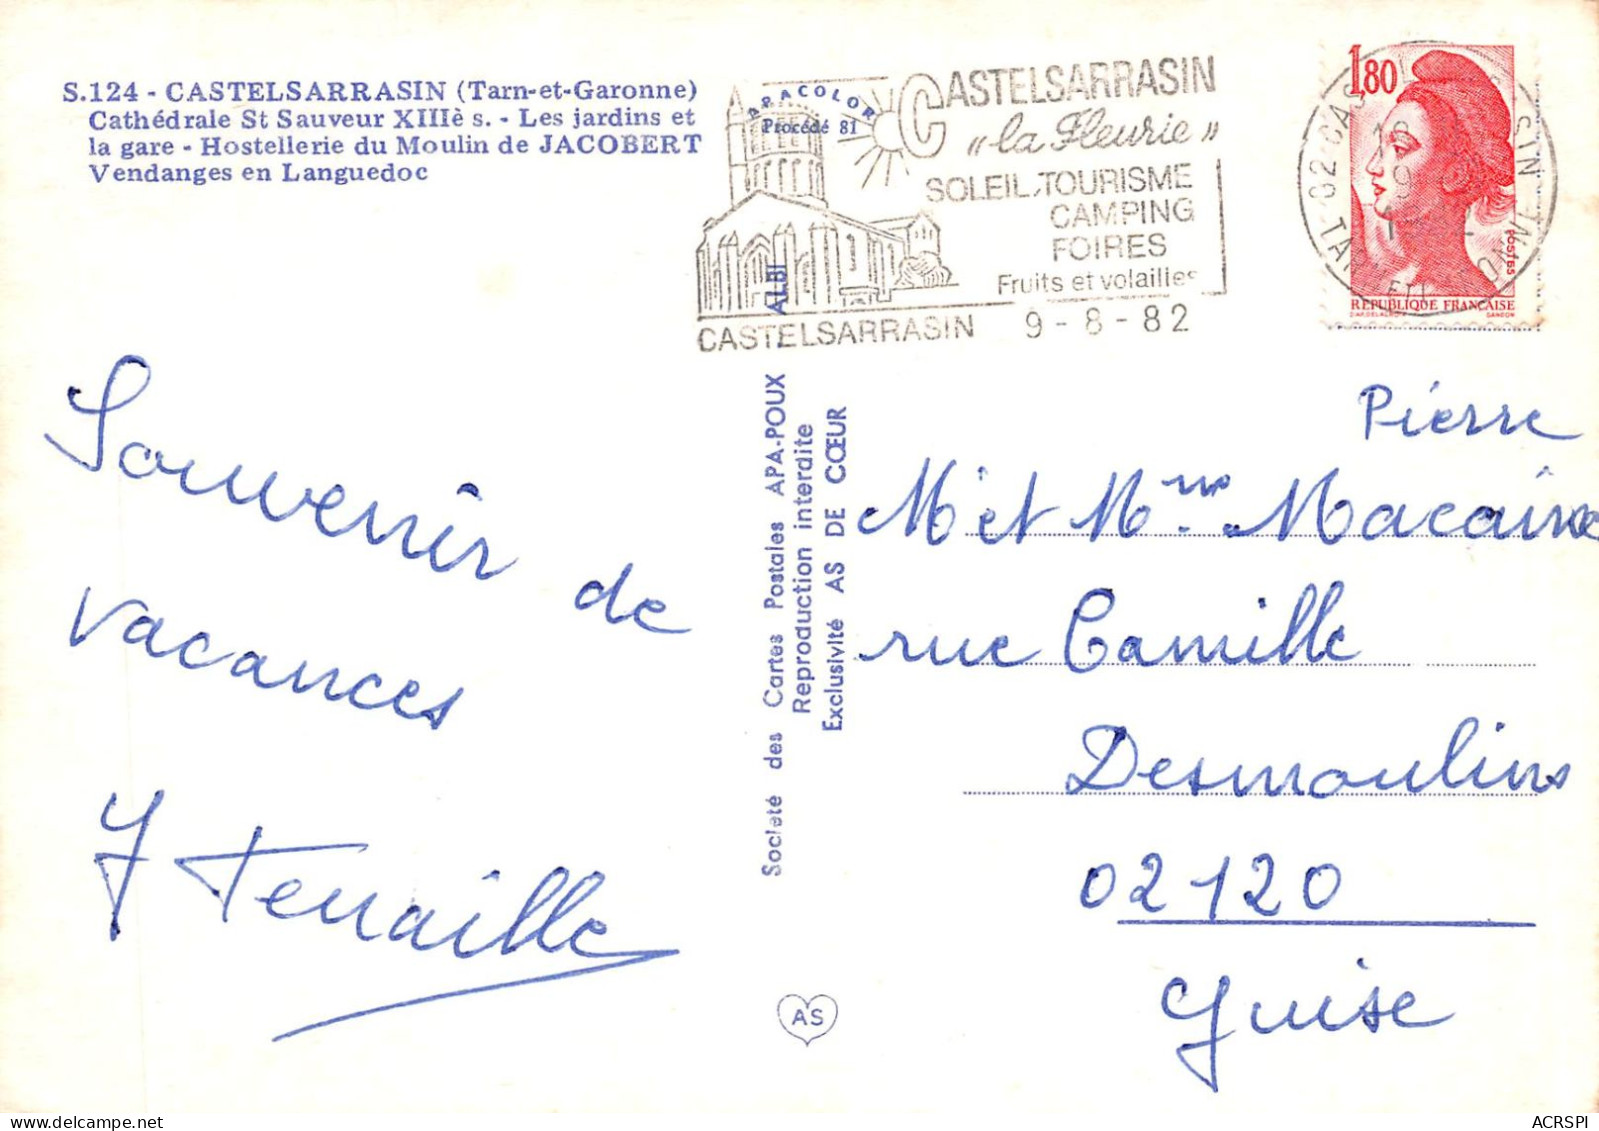 S.124 - CASTELSARRASIN (Tarn-et-Garonne)
Cathédrale St Sauveur XIIIè s. - Les jardins et
la gare - Hostellerie du Moulin de JACOBERT
Vendanges en Languedoc
APACOLOR
Procédé 81
ALBI
CASTELSARRASIN
"la Fleurie"
SOLEIL.TOURISME
CAMPING
FOIRES
Fruits et volailles
CASTELSARRASIN 9 - 8 - 82
1,80
POSTES
REPUBLIQUE FRANÇAISE
D'AP. DELACROIX GANDON
82
TARN ET
Souvenir de
vacances
Y Tenaille
Société des Cartes Postales APA-POUX
Reproduction interdite
Exclusivité AS DE CŒUR
AS
Pierre
Mr et Mme Macaire
rue Camille
Desmoulins
02120
Guise
ACRSPI